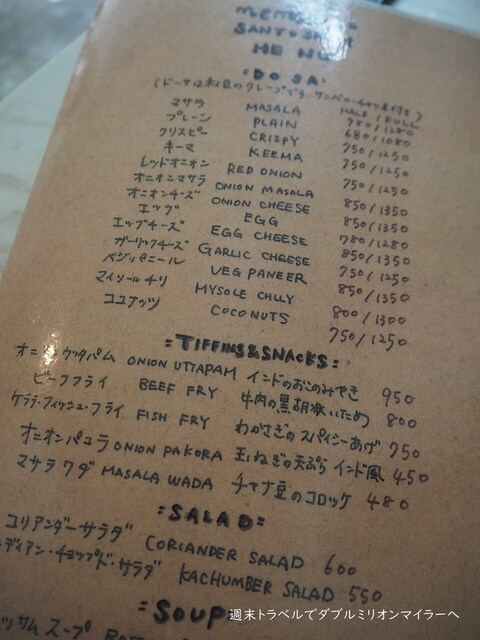 SANTOSHAM
MENU
=DOSA=
(ドーサは米と豆のクレープです。サンバル・チャツネ付き)
HALF/FULL
マサラ MASALA 780/1280
プレーン PLAIN 680/1080
クリスピー CRISPY 750/1250
キーマ KEEMA 750/1250
レッドオニオン RED ONION 750/1250
オニオンマサラ ONION MASALA 850/1350
オニオンチーズ ONION CHEESE 850/1350
エッグ EGG 780/1280
エッグチーズ EGG CHEESE 850/1350
ガーリックチーズ GARLIC CHEESE 750/1250
ベジパニール VEG PANEER 850/1350
マイソールチリ MYSOLE CHILLY 800/1300
ココナッツ COCONUTS 750/1250
=TIFFINS&SNACKS=
オニオンウッタパム ONION UTTAPAM インドのおこのみやき 950
ビーフフライ BEEF FRY 牛肉の黒胡椒いため 800
ケララ・フィッシュ・フライ FISH FRY わかさぎのスパイシーあげ 750
オニオンパコラ ONION PAKORA 玉ねぎの天ぷらインド風 450
マサラワダ MASALA WADA チャナ豆のコロッケ 480
=SALAD=
コリアンダーサラダ CORIANDER SALAD 600
ディアン・チョップド・サラダ KACHUMBER SALAD 550
=SOUP
ッサムスープ
週末トラベルでダブルミリオンマイラーへ